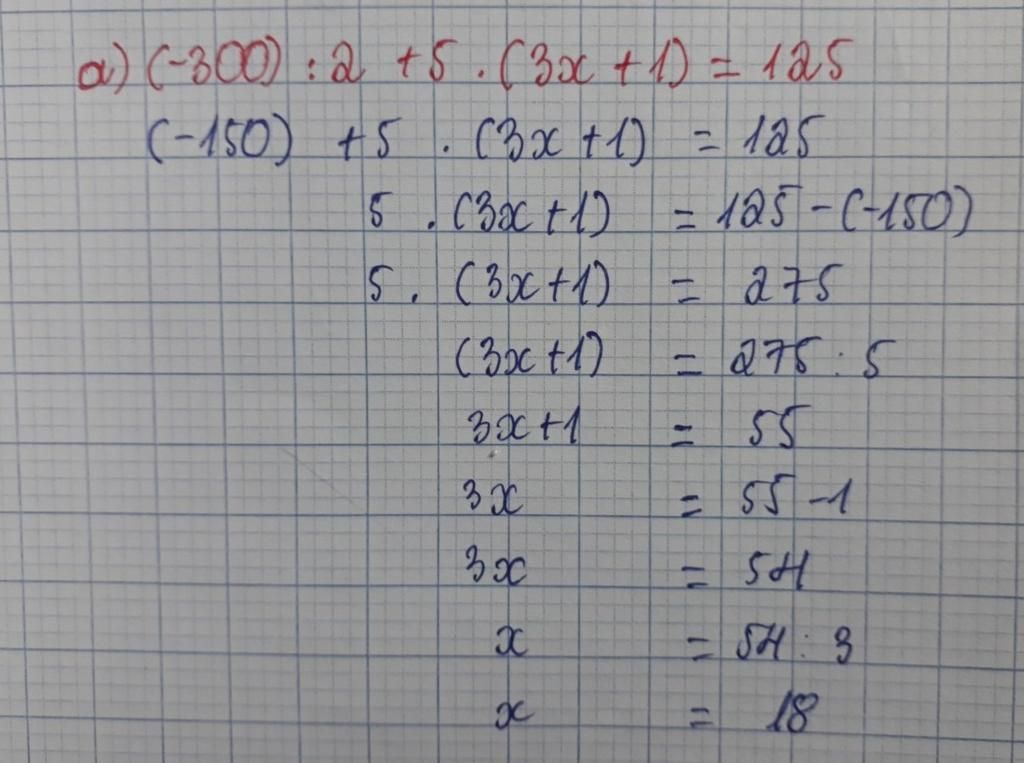 a) (-300) : 2 + 5 . (3x + 1) = 125
(-150) + 5 . (3x + 1) = 125
5 . (3x + 1) = 125 - (-150)
5 . (3x + 1) = 275
(3x + 1) = 275 : 5
3x + 1 = 55
3x = 55 - 1
3x = 54
x = 54 : 3
x = 18